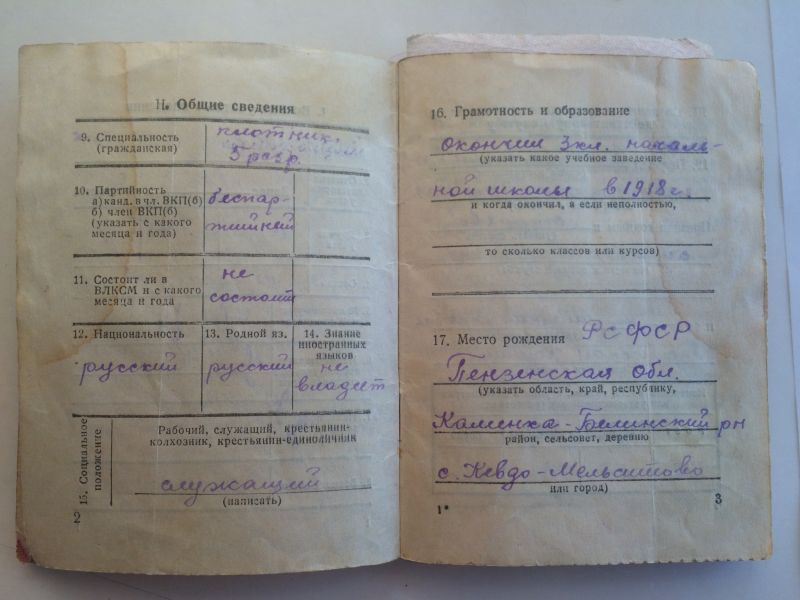 II. Общие сведения
9. Специальность
(гражданская)
плотник
5 разр.
10. Партийность
а) канд. в чл. ВКП(б)
б) член ВКП(б)
(указать с какого
месяца и года)
беспар-
тийный
11. Состоит ли в
ВЛКСМ и с какого
месяца и года
не
состоит
12. Национальность
русский
13. Родной яз.
русский
14. Знание
иностранных
языков
не
владеет
15. Социальное
положение
Рабочий, служащий, крестьянин-
колхозник, крестьянин-единоличник
служащий
(написать)
2
16. Грамотность и образование
окончил 3 кл. началь-
(указать какое учебное заведение
ной школы в 1918 г.
и когда окончил, а если неполностью,
то сколько классов или курсов)
17. Место рождения РСФСР
Пензенская обл.
(указать область, край, республику,
Каменка-Белинский рн
район, сельсовет, деревню
с. Кевдо-Мельситово
или город)
1*
3